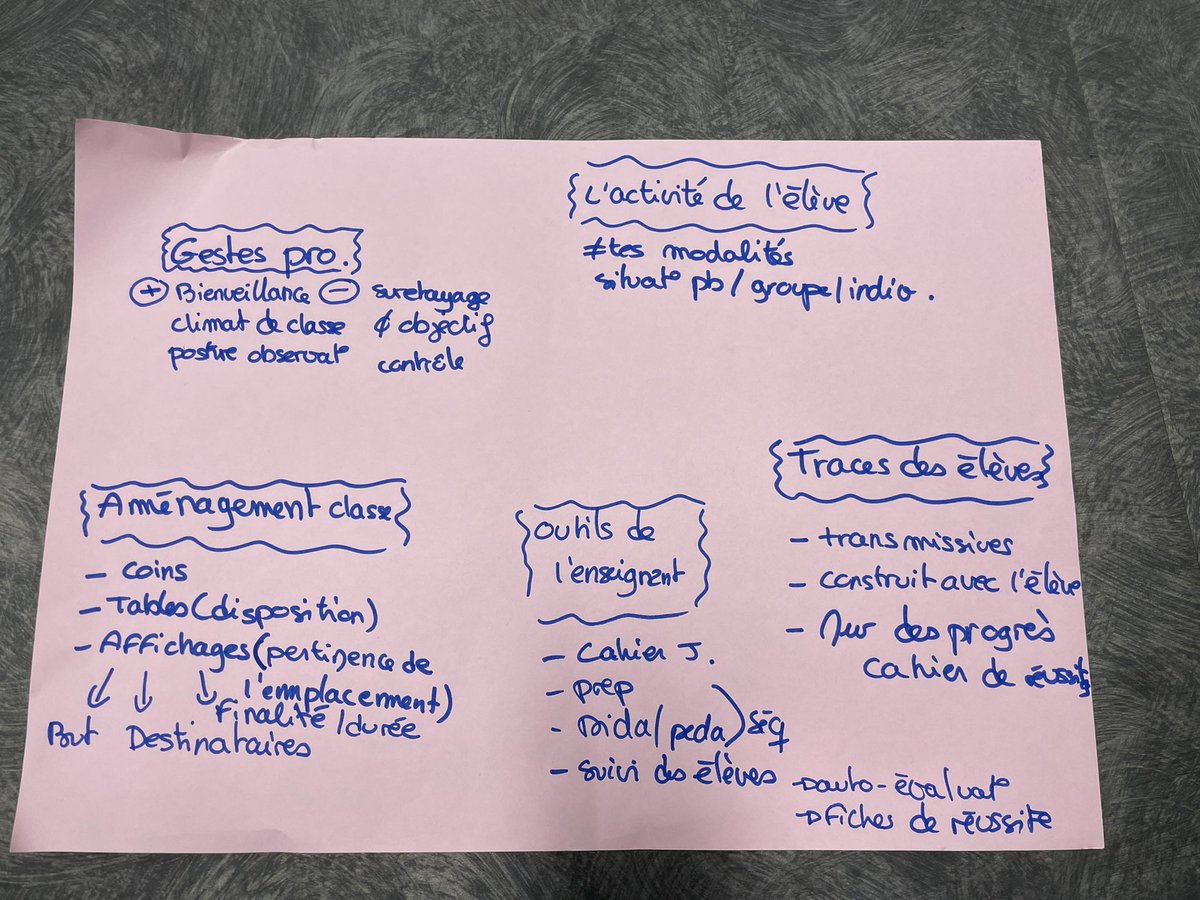 L'activité de l'élève
≠tes modalités
situat° pb / groupe / indiv.
Gestes pro.
+ Bienveillance
climat de classe
posture observat°
- suretayage
∅ objectif
contrôle
Aménagement classe
- coins
- Tables (disposition)
- Affichages (pertinence de
l'emplacement)
↓ ↓ ↓
But Destinataires Finalité / durée
Outils de
l'enseignant
- Cahier J.
- prep
- Dida / peda) séq
- suivi des élèves
→ auto-évaluat°
→ fiches de réussite
Traces des élèves
- transmissives
- construit avec l'élève
- Mur des progrès
cahier de réussites